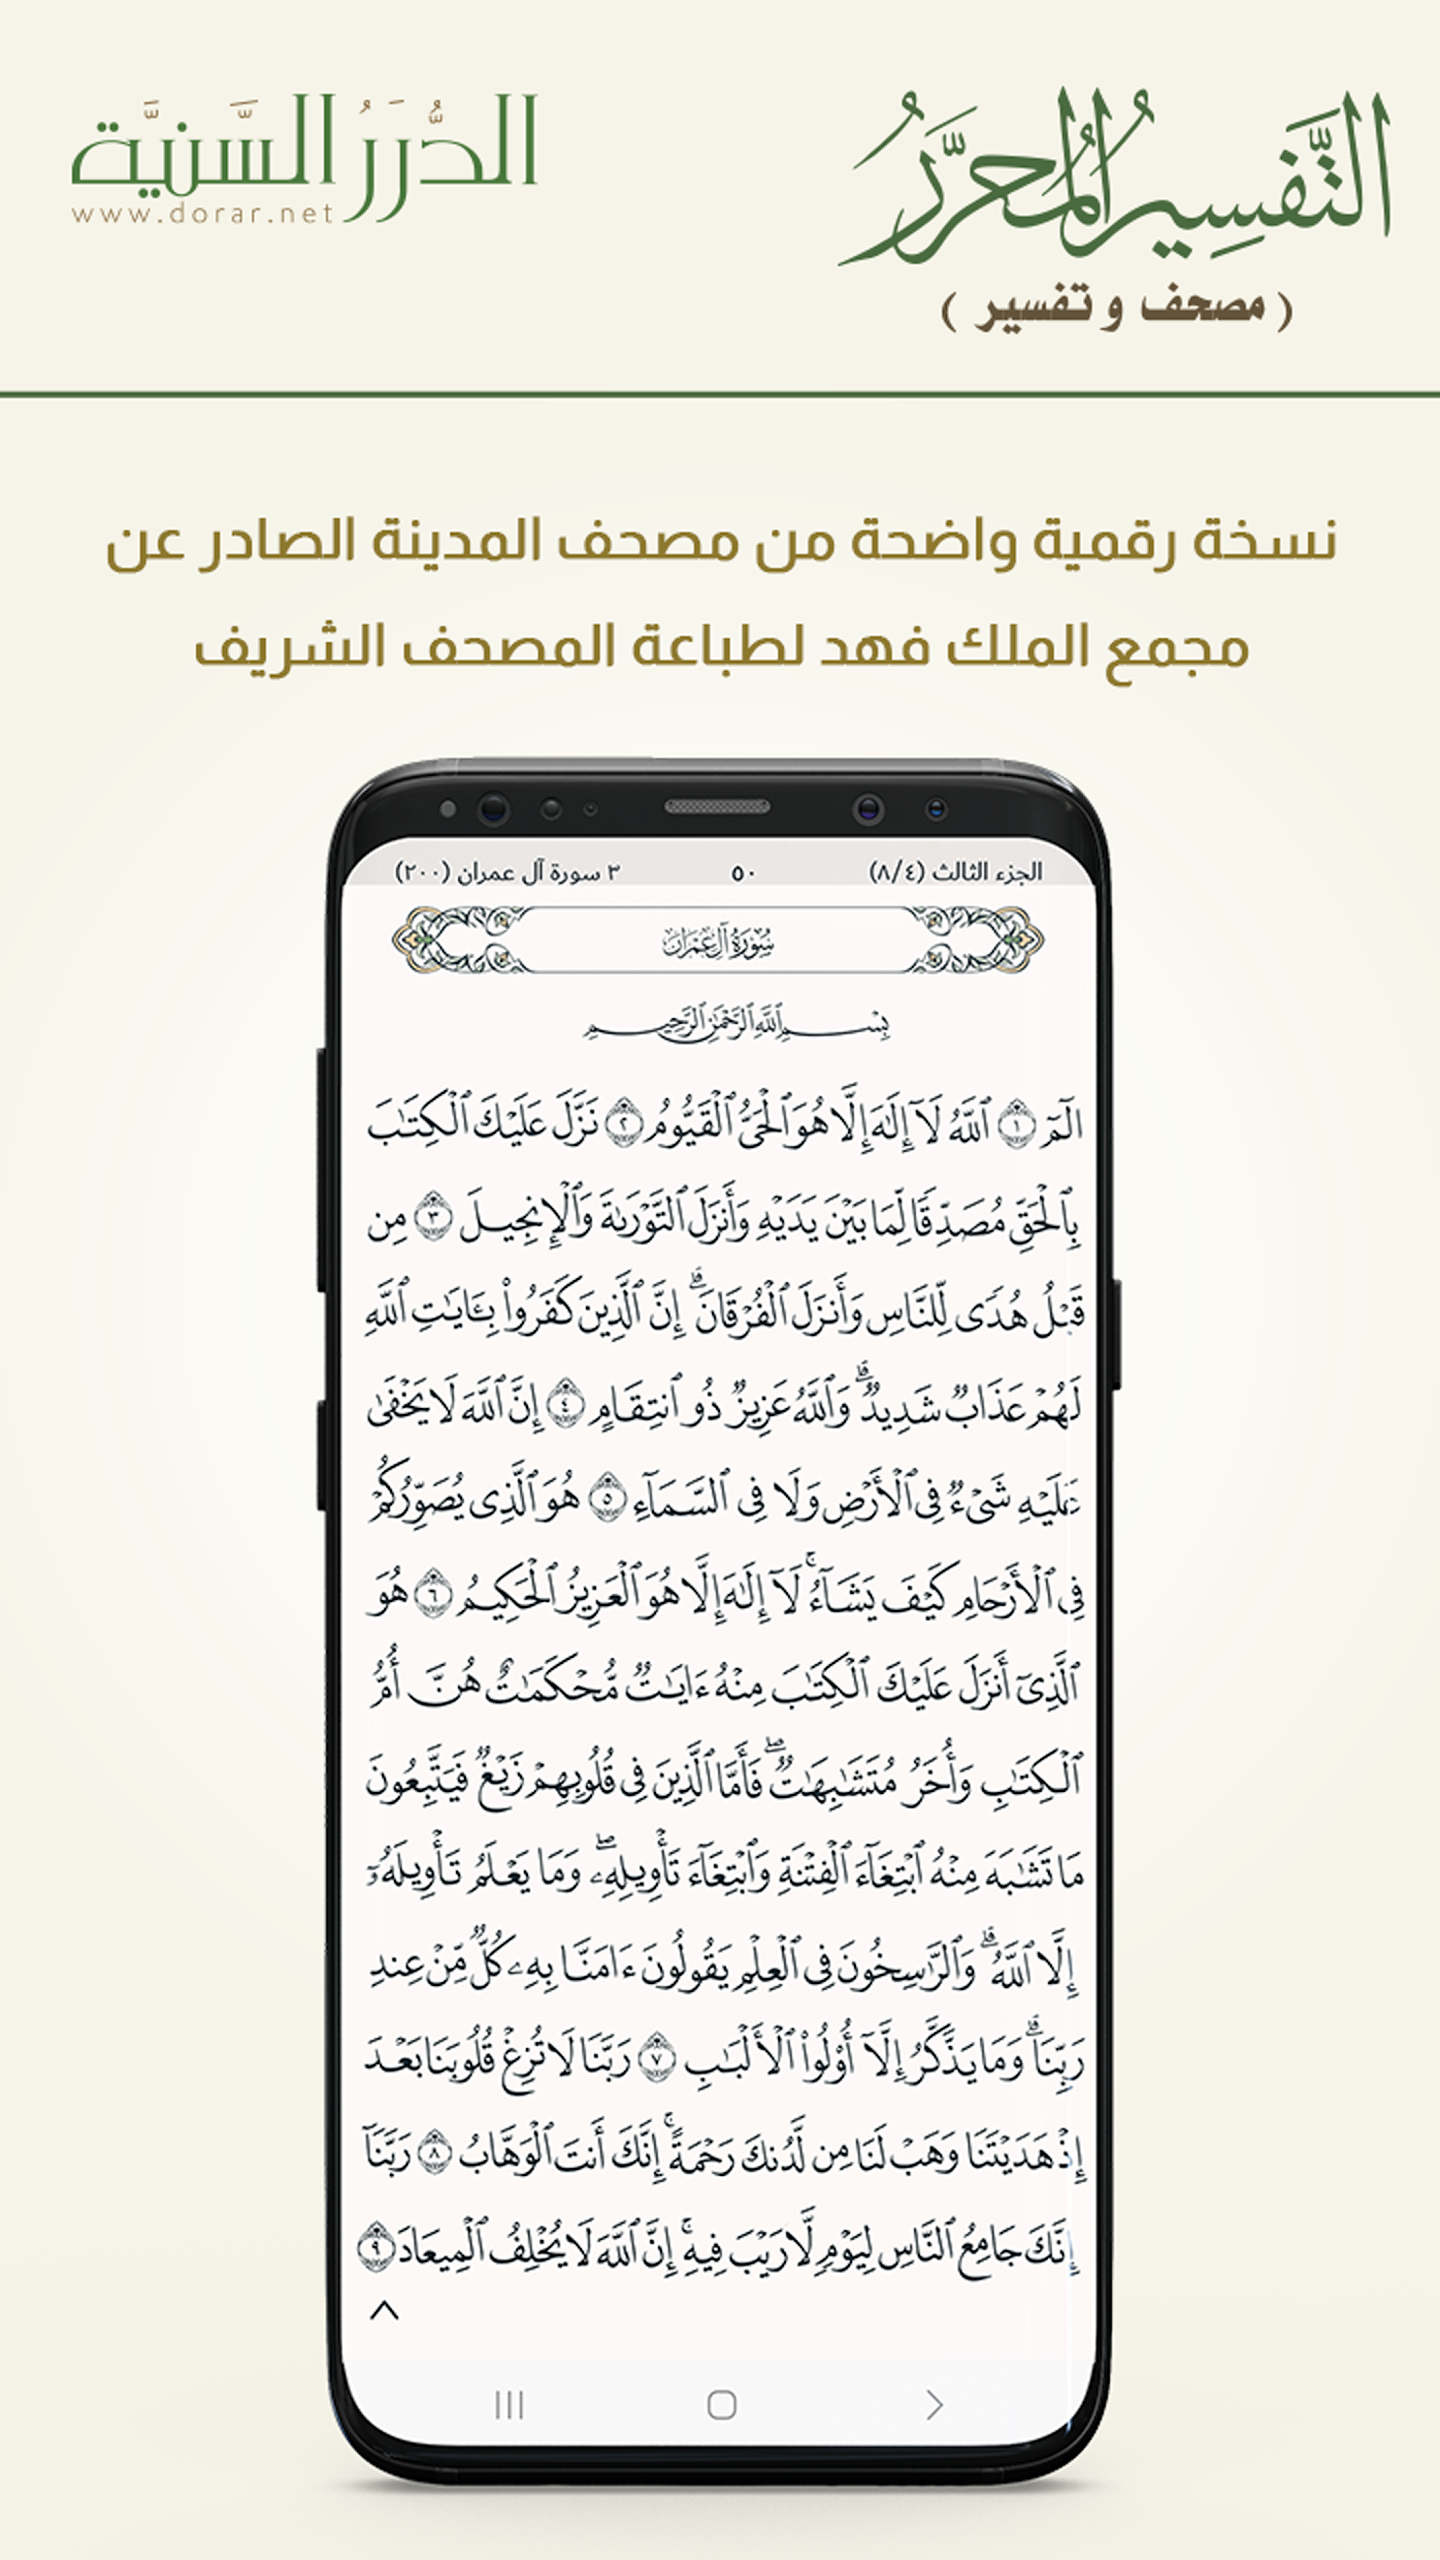 التَّفسِيرُ المُحرَّرُ
( مصحف و تفسير )
الدُّرَرُ السَّنيَّة
www.dorar.net
نسخة رقمية واضحة من مصحف المدينة الصادر عن
مجمع الملك فهد لطباعة المصحف الشريف
الجزء الثالث (٨/٤) ٥٠ ٣ سورة آل عمران (٢٠٠)
سُورَةُ آلِ عِمْرَان
بِسْمِ ٱللَّهِ ٱلرَّحْمَٰنِ ٱلرَّحِيمِ
الٓمٓ ١ ٱللَّهُ لَآ إِلَٰهَ إِلَّا هُوَ ٱلْحَىُّ ٱلْقَيُّومُ ٢ نَزَّلَ عَلَيْكَ ٱلْكِتَٰبَ
بِٱلْحَقِّ مُصَدِّقًا لِّمَا بَيْنَ يَدَيْهِ وَأَنزَلَ ٱلتَّوْرَىٰةَ وَٱلْإِنجِيلَ ٣ مِن
قَبْلُ هُدًى لِّلنَّاسِ وَأَنزَلَ ٱلْفُرْقَانَ ۗ إِنَّ ٱلَّذِينَ كَفَرُوا۟ بِـَٔايَٰتِ ٱللَّهِ
لَهُمْ عَذَابٌ شَدِيدٌ ۗ وَٱللَّهُ عَزِيزٌ ذُو ٱنتِقَامٍ ٤ إِنَّ ٱللَّهَ لَا يَخْفَىٰ
عَلَيْهِ شَىْءٌ فِى ٱلْأَرْضِ وَلَا فِى ٱلسَّمَآءِ ٥ هُوَ ٱلَّذِى يُصَوِّرُكُمْ
فِى ٱلْأَرْحَامِ كَيْفَ يَشَآءُ ۚ لَآ إِلَٰهَ إِلَّا هُوَ ٱلْعَزِيزُ ٱلْحَكِيمُ ٦ هُوَ
ٱلَّذِىٓ أَنزَلَ عَلَيْكَ ٱلْكِتَٰبَ مِنْهُ ءَايَٰتٌ مُّحْكَمَٰتٌ هُنَّ أُمُّ
ٱلْكِتَٰبِ وَأُخَرُ مُتَشَٰبِهَٰتٌ ۖ فَأَمَّا ٱلَّذِينَ فِى قُلُوبِهِمْ زَيْغٌ فَيَتَّبِعُونَ
مَا تَشَٰبَهَ مِنْهُ ٱبْتِغَآءَ ٱلْفِتْنَةِ وَٱبْتِغَآءَ تَأْوِيلِهِۦ ۖ وَمَا يَعْلَمُ تَأْوِيلَهُۥٓ
إِلَّا ٱللَّهُ ۗ وَٱلرَّٰسِخُونَ فِى ٱلْعِلْمِ يَقُولُونَ ءَامَنَّا بِهِۦ كُلٌّ مِّنْ عِندِ
رَبِّنَا ۗ وَمَا يَذَّكَّرُ إِلَّآ أُو۟لُوا۟ ٱلْأَلْبَٰبِ ٧ رَبَّنَا لَا تُزِغْ قُلُوبَنَا بَعْدَ
إِذْ هَدَيْتَنَا وَهَبْ لَنَا مِن لَّدُنكَ رَحْمَةً ۚ إِنَّكَ أَنتَ ٱلْوَهَّابُ ٨ رَبَّنَآ
إِنَّكَ جَامِعُ ٱلنَّاسِ لِيَوْمٍ لَّا رَيْبَ فِيهِ ۚ إِنَّ ٱللَّهَ لَا يُخْلِفُ ٱلْمِيعَادَ ٩